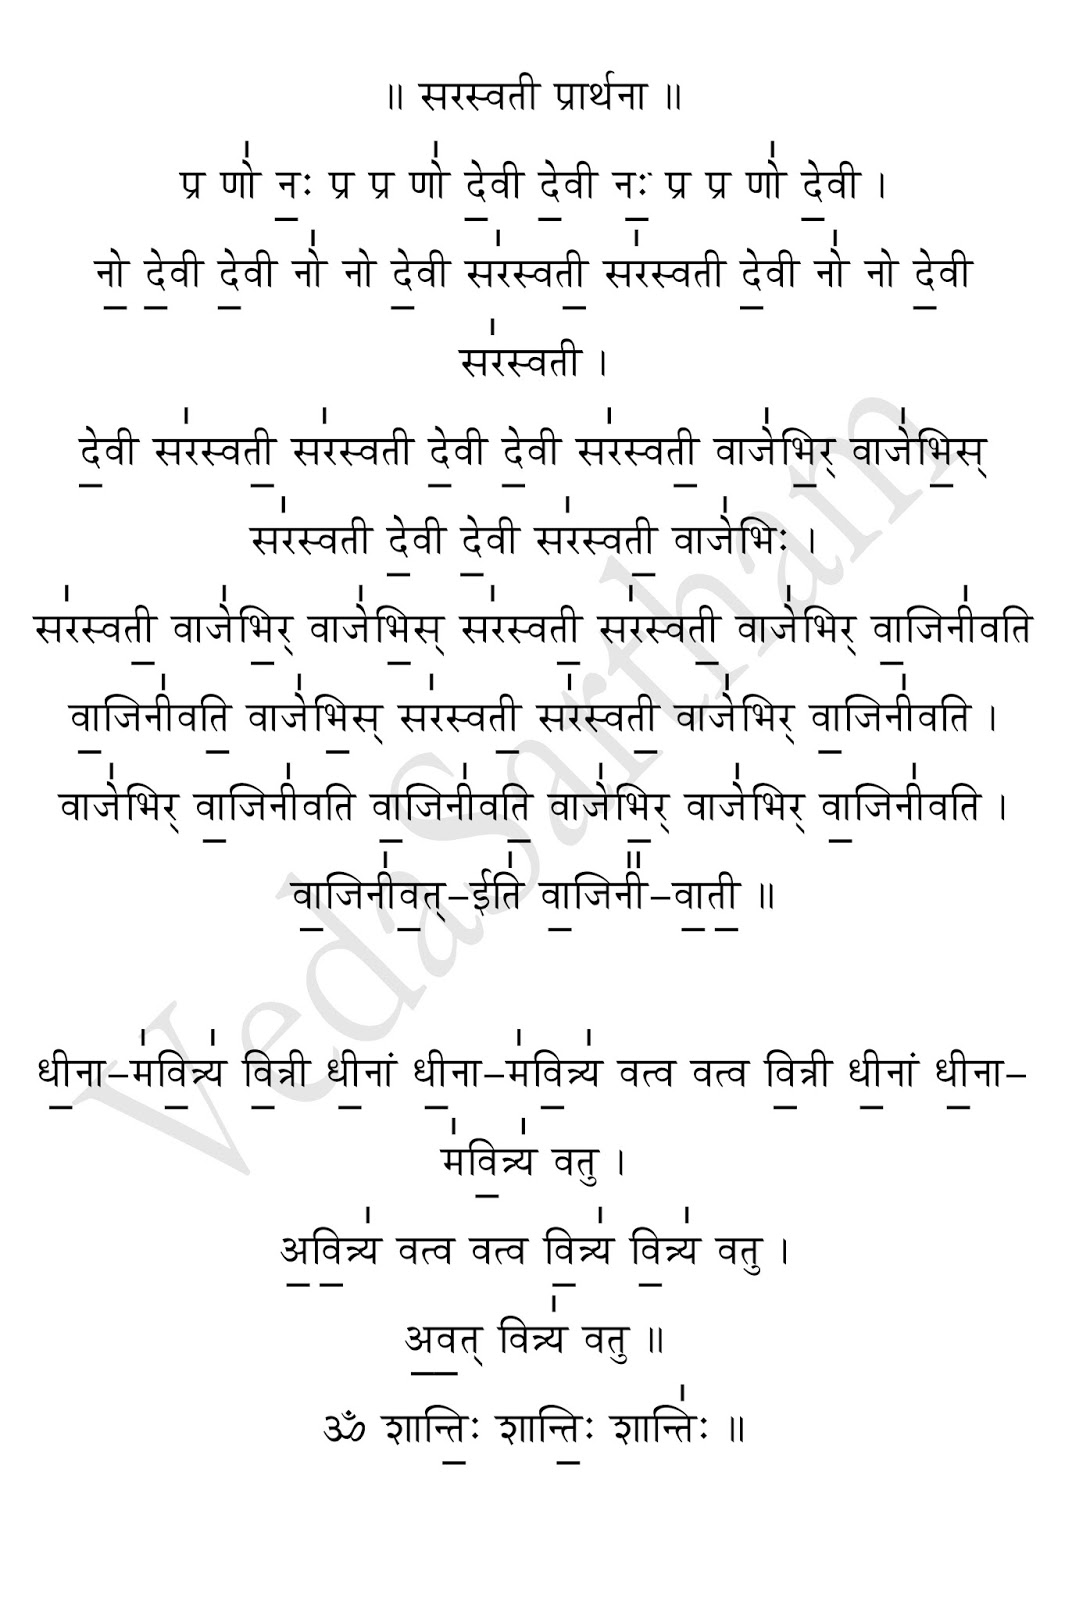 ॥ सरस्वती प्रार्थना ॥
प्र णो॑ न॒ः प्र प्र णो॑ दे॒वी दे॒वी न॒ः प्र प्र णो॑ दे॒वी ।
नो॒ दे॒वी दे॒वी नो॑ नो दे॒वी सर॑स्वती॒ सर॑स्वती दे॒वी नो॑ नो दे॒वी
सर॑स्वती ।
दे॒वी सर॑स्वती॒ सर॑स्वती दे॒वी दे॒वी सर॑स्वती॒ वाजे॑भि॒र् वाजे॑भि॒स्
सर॑स्वती दे॒वी दे॒वी सर॑स्वती॒ वाजे॑भिः ।
सर॑स्वती॒ वाजे॑भि॒र् वाजे॑भि॒स् सर॑स्वती॒ सर॑स्वती॒ वाजे॑भिर् वा॒जिनी॑वति
वा॒जिनी॑वति॒ वाजे॑भि॒स् सर॑स्वती॒ सर॑स्वती॒ वाजे॑भिर् वा॒जिनी॑वति ।
वाजे॑भिर् वा॒जिनी॑वति वा॒जिनी॑वति॒ वाजे॑भि॒र् वाजे॑भिर् वा॒जिनी॑वति ।
वा॒जिनी॑व॒त्-ईति॑ वा॒जिनी᳚-वा॒ती॒ ॥
धी॒ना-म॑वि॒त्र्य॑ वि॒त्री धी॒नां धी॒ना-म॑वि॒त्र्य॑ वत्व वत्व वि॒त्री धी॒नां धी॒ना-
म॑वि॒त्र्य॑ वतु ।
अ॒वि॒त्र्य॑ वत्व वत्व वि॒त्र्य॑ वि॒त्र्य॑ वतु ।
अ॒व॒त् वित्र्य॑ वतु ॥
ॐ शान्ति॒ः शान्ति॒ः शान्ति॑ः ॥
VedaSartham